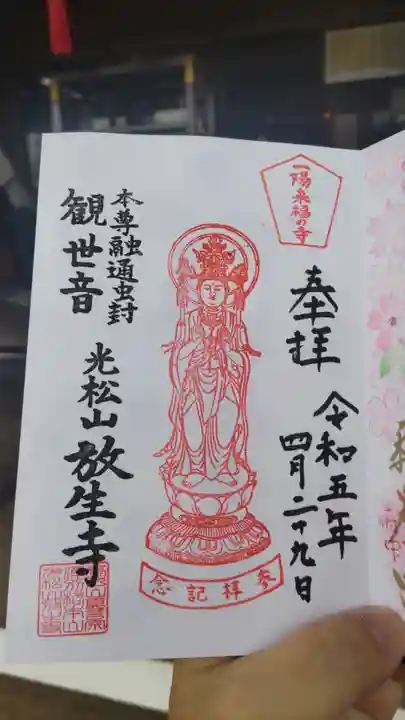 一陽来福の寺
奉拝
令和五年
四月二十九日
本尊融通虫封
観世音
光松山放生寺
参拝記念